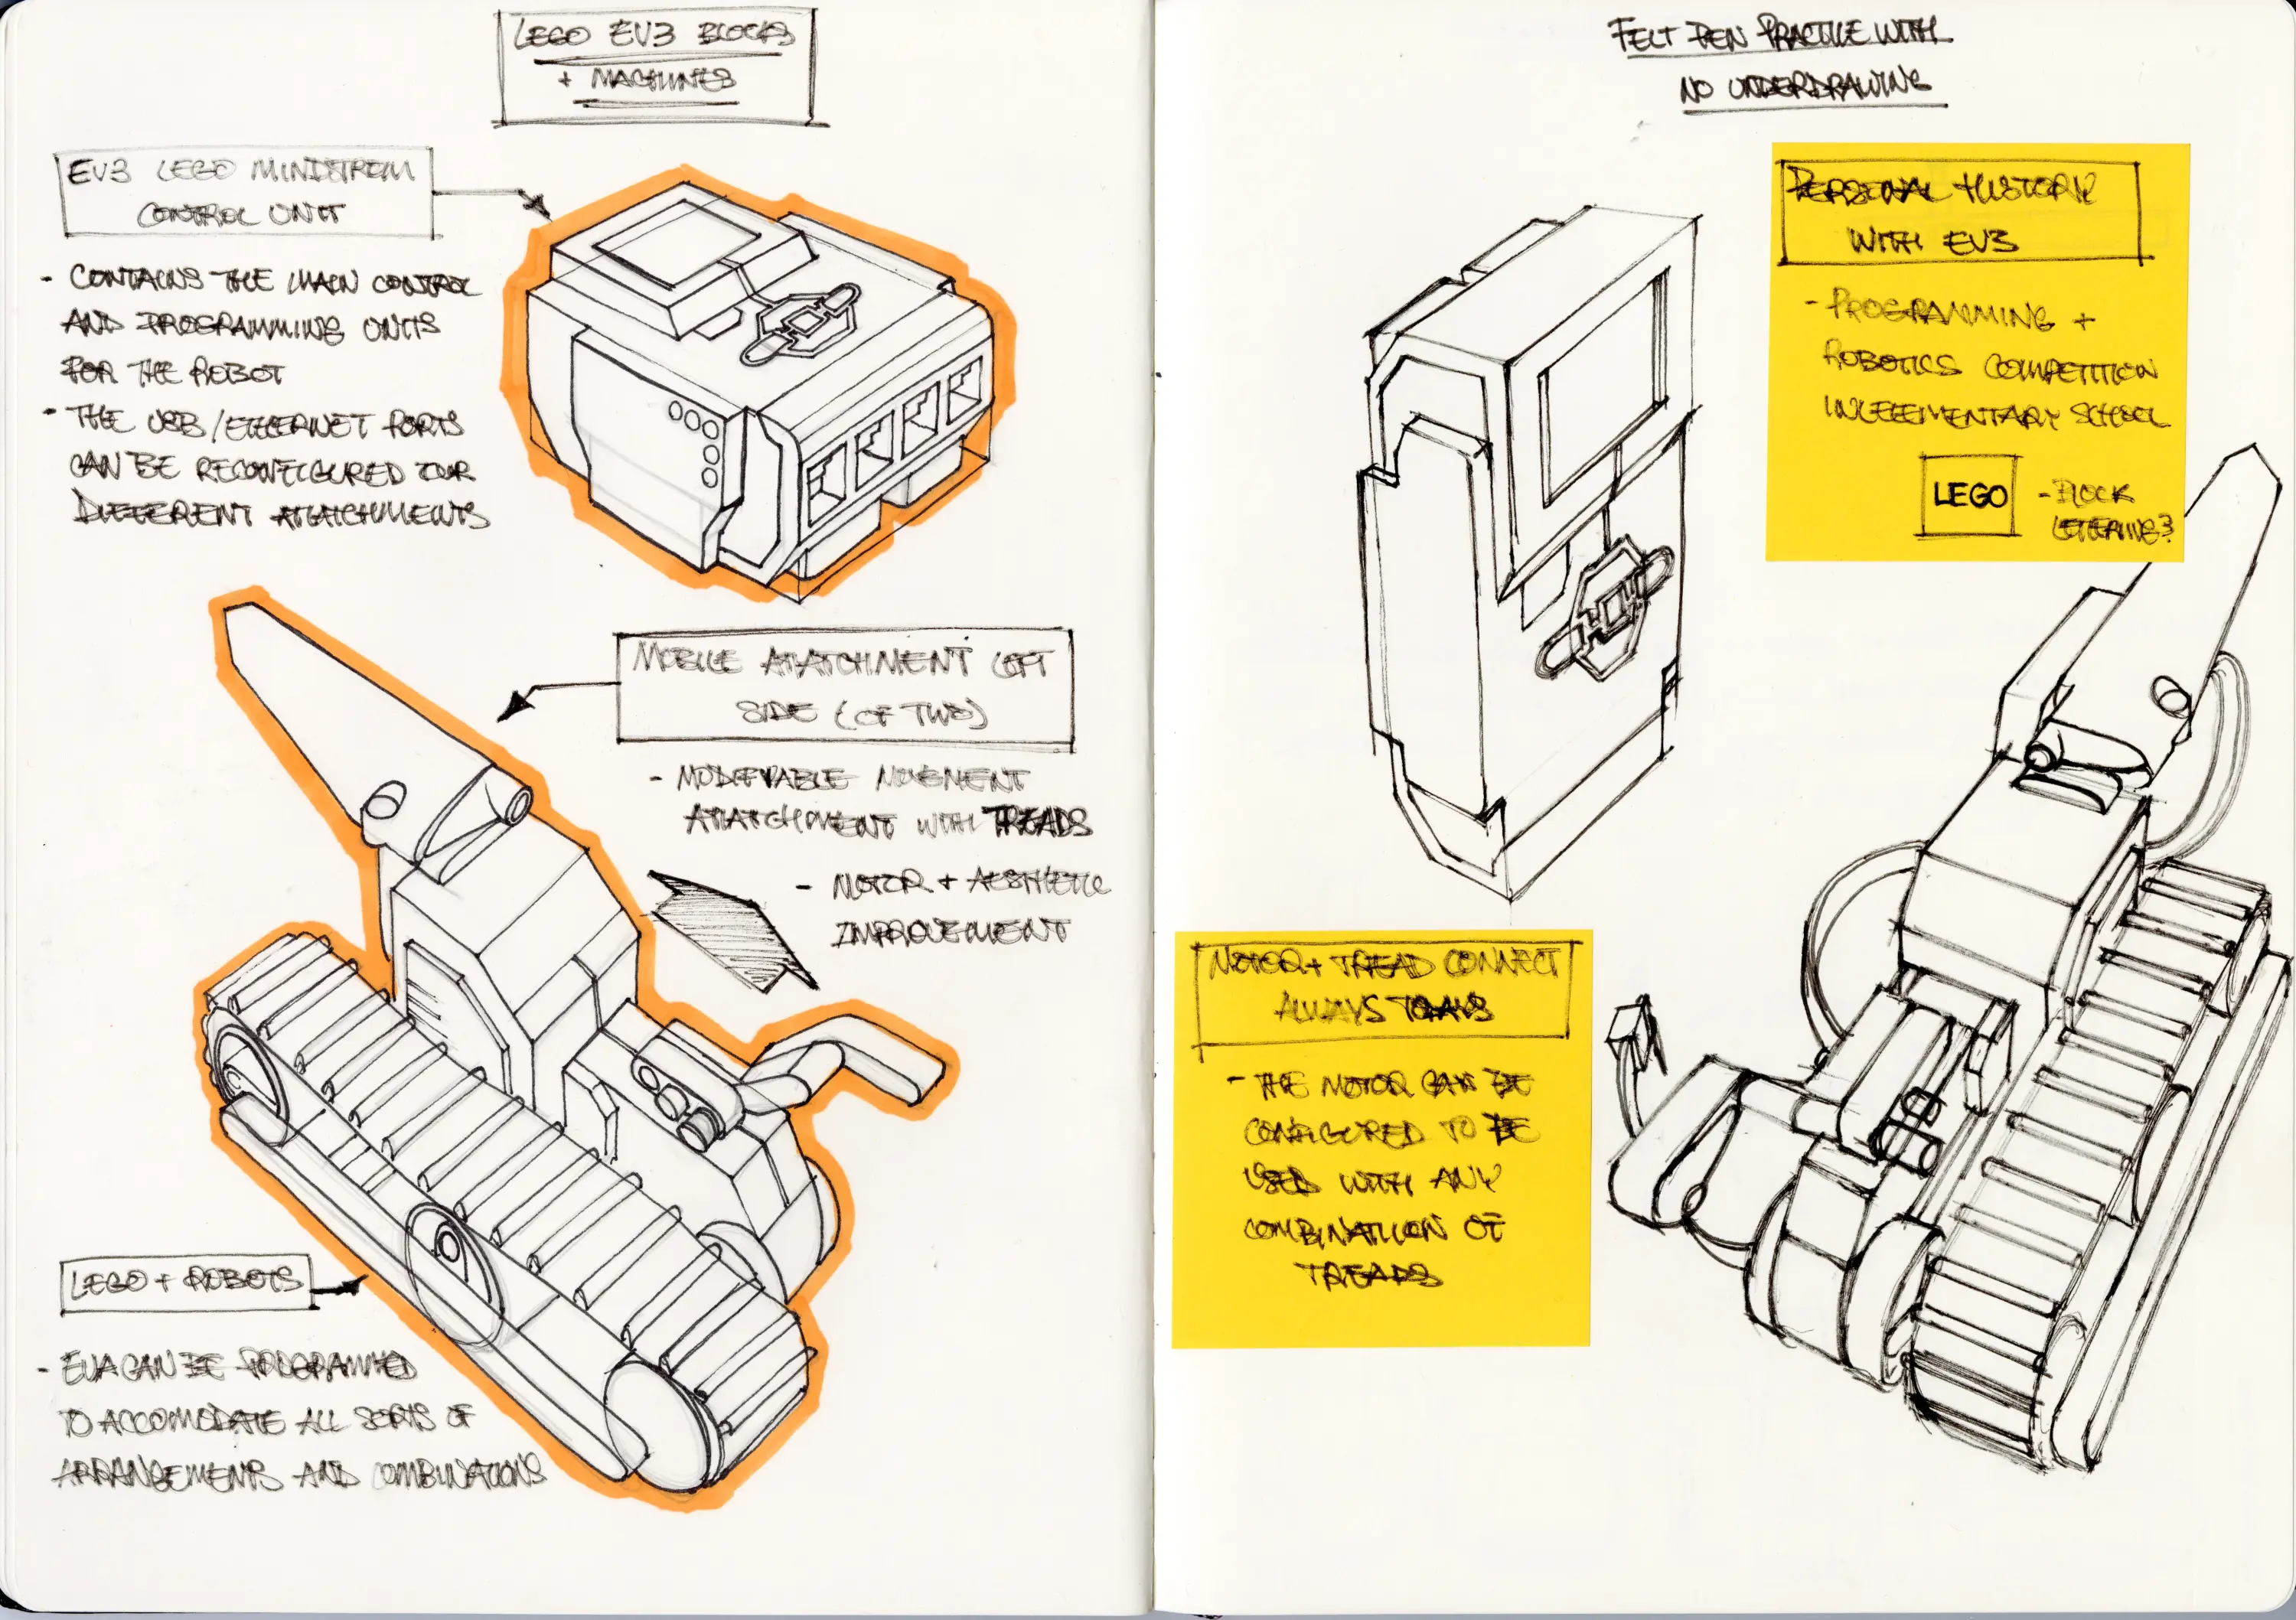 LEGO EV3 BLOCKS
+ MACHINES
EV3 LEGO MINDSTROM
CONTROL UNIT
- CONTAINS THE MAIN CONTROL
AND PROGRAMMING UNITS
FOR THE ROBOT
- THE USB/ETHERNET PORTS
CAN BE RECONFIGURED FOR
DIFFERENT ATATCHMENTS
MOBILE ATATCHMENT LEFT
SIDE (OF TWO)
- MODIFYABLE MOVEMENT
ATATCHMENT WITH TREADS
- MOTOR + AESTHETIC
IMPROVEMENT
LEGO + ROBOTS
- CAN BE PROGRAMMED
TO ACCOMODATE ALL SORTS OF
ARRANGEMENTS AND COMBINATIONS
FELT PEN PRACTICE WITH
NO UNDERDRAWING
PERSONAL HISTORY
WITH EV3
- PROGRAMMING +
ROBOTICS COMPETITION
IN ELEMENTARY SCHOOL
LEGO
- BLOCK
LETTERING?
MOTOR + TREAD CONNECT
ALWAYS
- THE MOTOR CAN BE
CONFIGURED TO BE
USED WITH ANY
COMBINATIION OF
TREADS